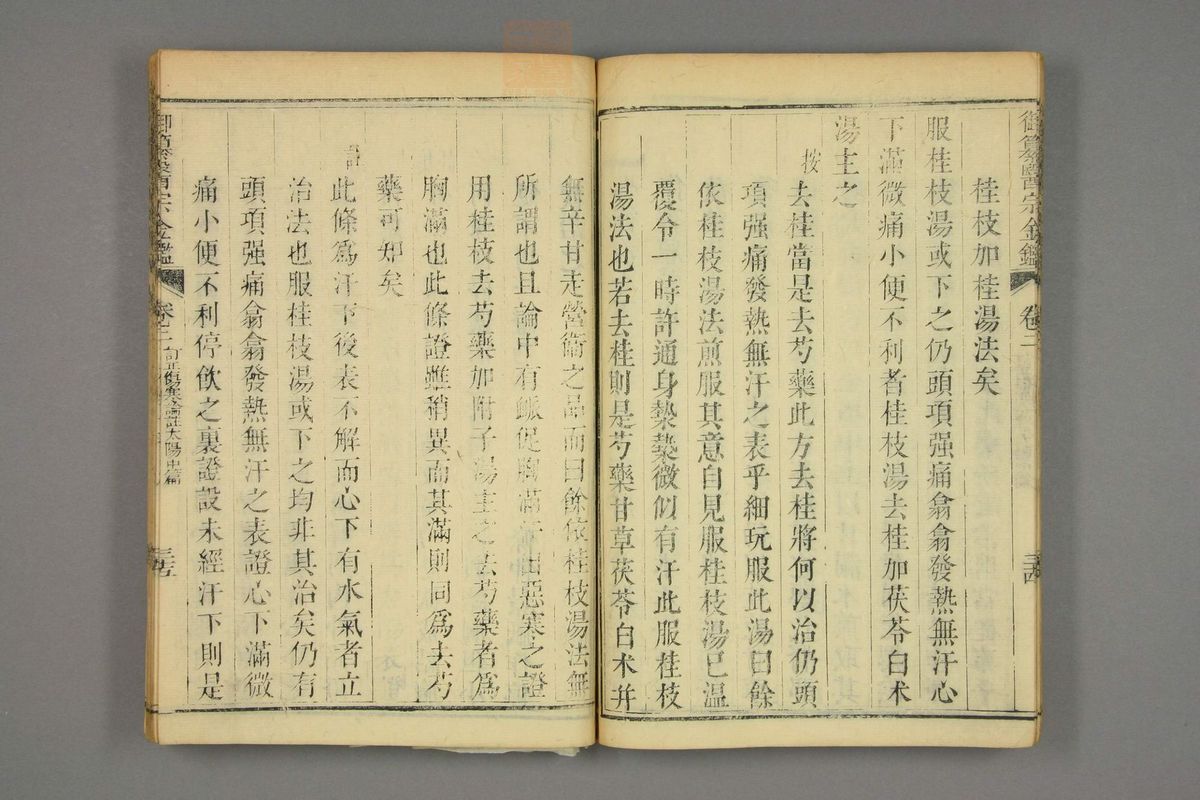 御纂醫宗金鑑 卷二 三十四
桂枝加桂湯法矣
服桂枝湯或下之仍頭項强痛翕翕發熱無汗心
下滿微痛小便不利者桂枝湯去桂加茯苓白术
湯主之
按去桂當是去芍藥此方去桂將何以治仍頭
項强痛發熱無汗之表乎細玩服此湯曰餘
依桂枝湯法煎服其意自見服桂枝湯已溫
覆令一時許通身漐漐微似有汗此服桂枝
湯法也若去桂則是芍藥甘草茯苓白术并
無辛甘走營衞之品而曰餘依桂枝湯法無
所謂也且論中有脈促胸滿 惡寒之證
用桂枝去芍藥加附子湯主之去芍藥者爲
胸滿也此條證雖稍異而其滿則同爲去芍
藥可知矣
註此條爲汗下後表不解而心下有水氣者立
治法也服桂枝湯或下之均非其治矣仍有
頭項强痛翕翕發熱無汗之表證心下滿微
痛小便不利停飮之裏證設未經汗下則是
御纂醫宗金鑑 卷之二 訂正傷寒論註太陽中篇